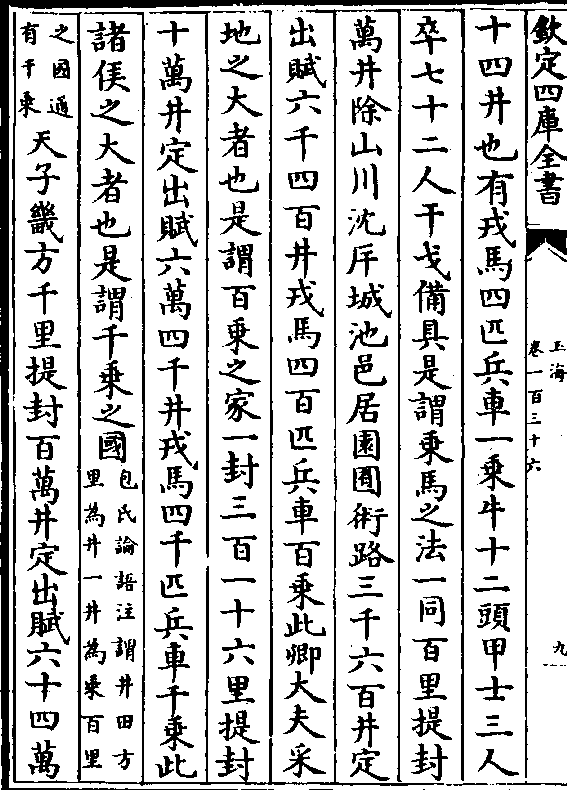 欽定四庫全書
玉海
卷一百三十六
九
十四井也有戎馬四匹兵車一乘牛十二頭甲士三人
卒七十二人干戈備具是謂乘馬之法一同百里提封
萬井除山川沈斥城池邑居園囿術路三千六百井定
出賦六千四百井戎馬四百匹兵車百乘此卿大夫采
地之大者也是謂百乘之家一封三百一十六里提封
十萬井定出賦六萬四千井戎馬四千匹兵車千乘此
諸侯之大者也是謂千乘之國
包氏論語注謂井田方
里為井一井為乘百里
之國適
有千乘
天子畿方千里提封百萬井定出賦六十四萬